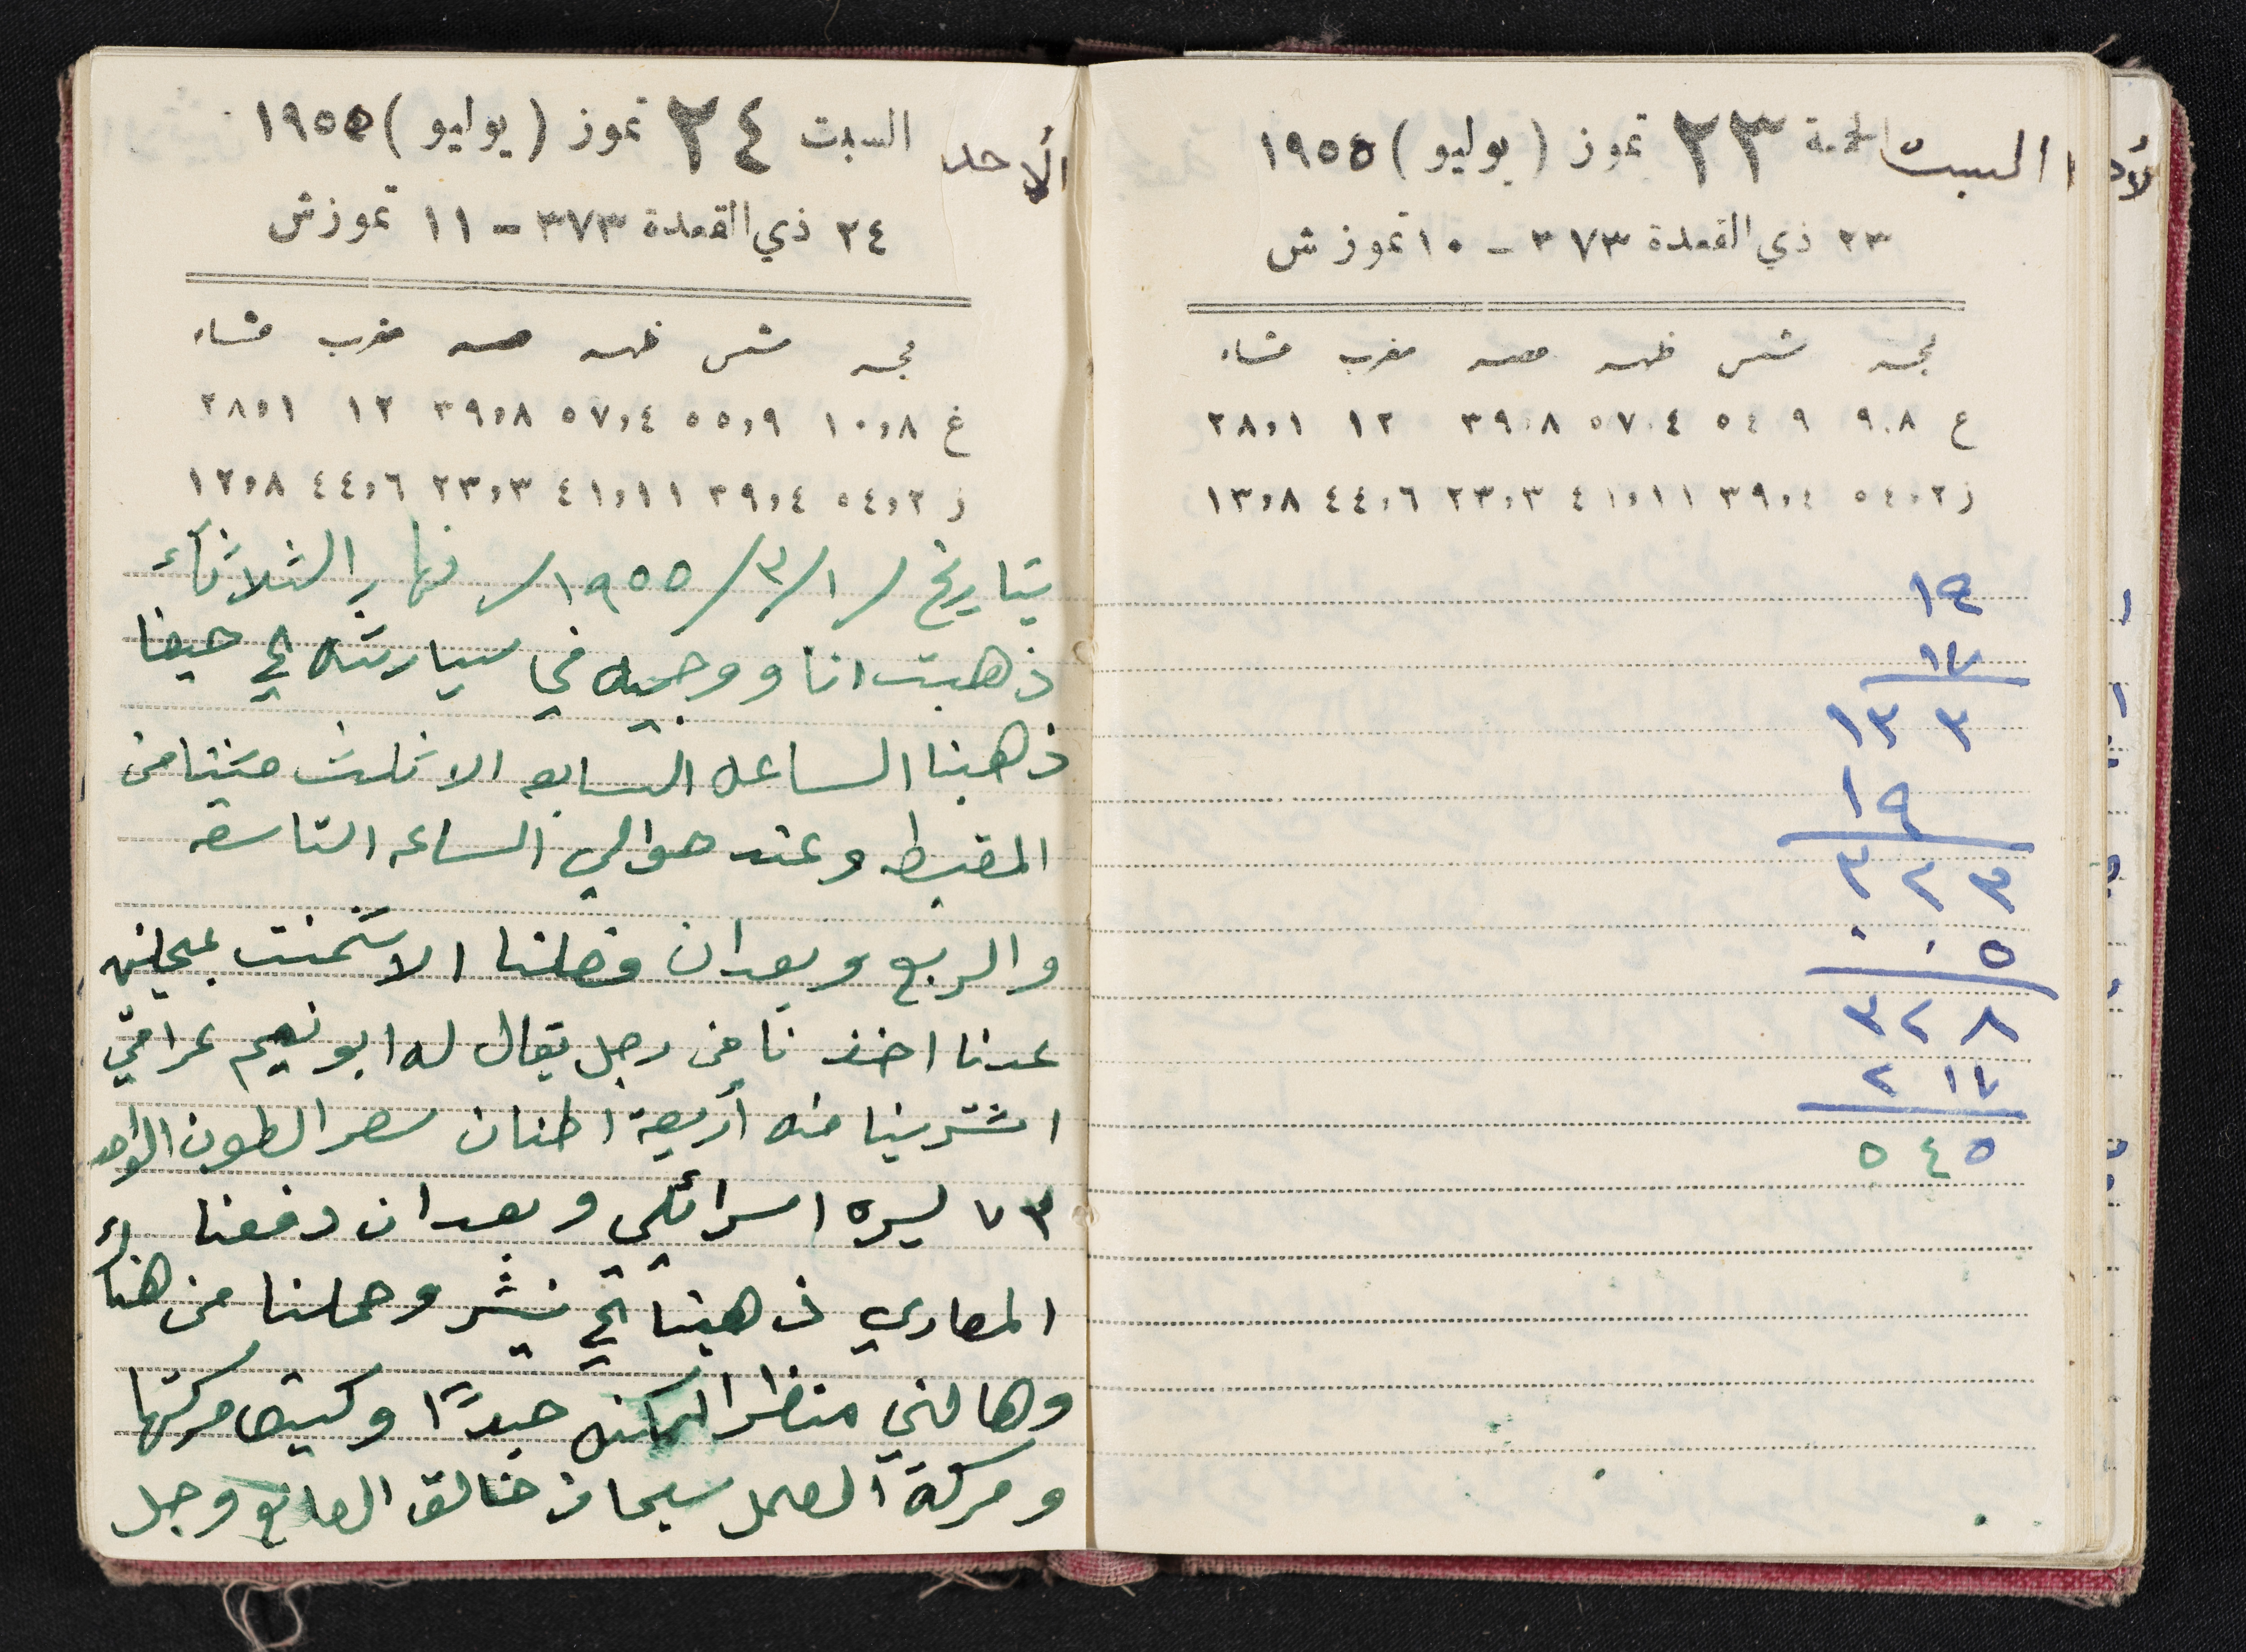 السبت الجمعة ٢٣ تموز ( يوليو ) ١٩٥٥
٢٣ ذي القعدة ٣٧٣ - ١٠ تموز ش
فجر شمس ظهر عصر مغرب عشاء
ع ٩،٨ ٥٤،٩ ٥٧،٤ ٣٩،٨ ١٢ ٢٨،١
ز ٥٤،٢ ٣٩،٤ ٤١،١١ ٢٣،٣ ٤٤،٦ ١٣،٨
١٧
١٣٣
١٩
٣٢٣
٠٠٥
٣٢٨
٢١٧
٥٤٥
الأحد السبت ٢٤ تموز ( يوليو ) ١٩٥٥
٢٤ ذي القعدة ٣٧٣ - ١١ تموز ش
فجر شمس ظهر عصر مغرب عشاء
غ ١٠،٨ ٥٥،٩ ٥٧،٤ ٣٩،٨ ١٢ ٢٨،١
ز ٥٤،٢ ٣٩،٤ ٤١،١١ ٢٣،٣ ٤٤،٦ ١٢،٨
بتاريخ /١/٣/١٩٥٥/ نهار الثلاثاء
ذهبت انا ووجيه في سيارته الى حيفا
ذهبنا الساعه السابعه الا ثلث متنا من
وعند حوالي الساعه التاسعه
والربع وبعد ان وصلنا الاشمنت
عدنا اخذنا من رجل يقال له ابو نعيم عراقي
اشترينا منه أربعة اطنان سعر الطون الواحد
٧٣ ليره اسرائلي وبعد ان دفعنا
المصاري ذهبنا الى نيشر وحملنا من هناك
وهالني منظر المكنه جيدًا وكيف مركتها
ومركة العمل سبحان خالق الصانع وجل